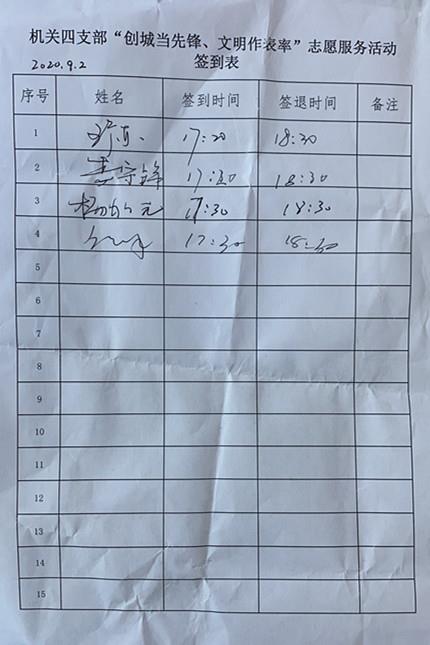 机关四支部“创城当先锋、文明作表率”志愿服务活动
签到表
2020.9.2
序号 姓名 签到时间 签退时间 备注
1 17:20 18:30
2 17:30 18:30
3 17:30 18:30
4 17:30 18:30
5
6
7
8
9
10
11
12
13
14
15